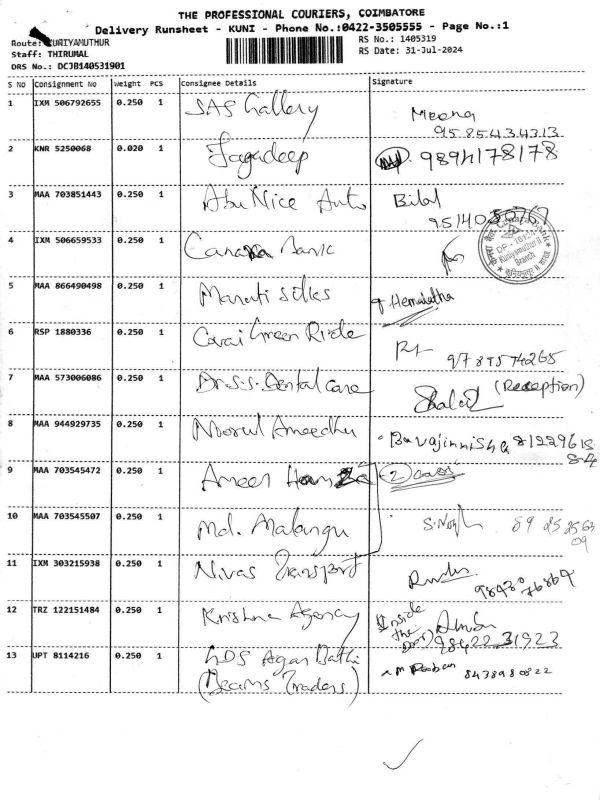 THE PROFESSIONAL COURIERS, COIMBATORE
Delivery Runsheet - KUNI - Phone No.:0422-3505555 - Page No.:1
Route: KURIYAMUTHUR
RS No.: 1405319
Staff: THIRUMAL
RS Date: 31-Jul-2024
DRS No.: DCJB140531901
S No Consignment No Weight PCS Consignee Details Signature
1 IXM 506792655 0.250 1 SAS Gallery Meena
9585434313
2 KNR 5250068 0.020 1 Jagadeep 9894178178
3 MAA 703851443 0.250 1 Abu Nice Auto Bilal
9514050767
4 IXM 506659533 0.250 1 Canara Bank
Canara Bank
DP - 16154
Kuniyamuthur II
Branch
5 MAA 866490498 0.250 1 Maruti Silks Hemalatha
6 RSP 1880336 0.250 1 Covai Green Ride 9789574265
7 MAA 573006086 0.250 1 Dr.S.S. Dental care (Reception)
8 MAA 944929735 0.250 1 Noorul Ameedhu Bavajinnisha 81229618
84
9 MAA 703545472 0.250 1 Ameer Hamza 2
10 MAA 703545507 0.250 1 Md. Malangu 89 25 25 63
09
11 IXM 303215938 0.250 1 Nivas Transport
12 TRZ 122151484 0.250 1 Krishna Agency (Inside
the
Door) 9842231923
13 UPT 8114216 0.250 1 GDS Agar Bathi 8438980822
(Beams Traders)